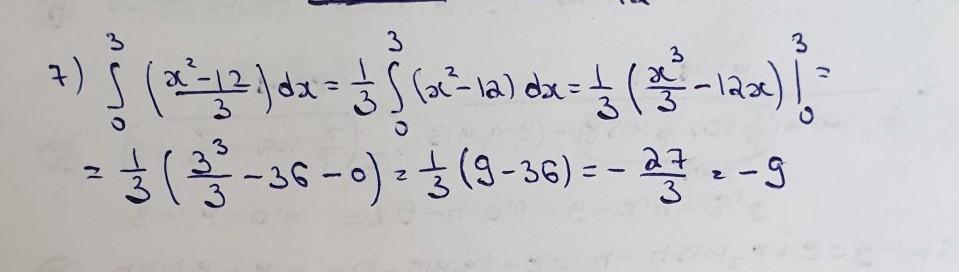 7) ∫₀³ (x²-12/3) dx = 1/3 ∫₀³ (x²-12) dx = 1/3 (x³/3 - 12x) |₀³ =
= 1/3 (3³/3 - 36 - 0) = 1/3 (9-36) = - 27/3 = -9